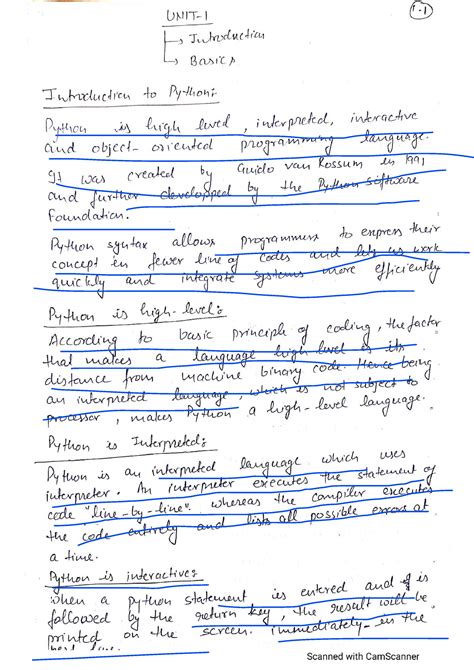 1.1
UNIT-1
→ Introduction
→ Basics
Introduction to Python:
Python is high level, interpreted, interactive
and object-oriented programming language.
It was created by Guido van Rossum in 1991
and further developped by the Python Software
Foundation.
Python syntax allows programmers to express their
concept in fewer line of codes and lets us work
quickly and integrate systems more efficiently
Python is high-level:
According to basic principle of coding, the factor
that makes a language high level is its
distance from machine binary code. Hence being
an interpreted language, which is not subject to
processor, makes Python a high-level language.
Python is Interpreted:
Python is an interpreted language which uses
interpreter. An interpreter executes the statement of
code "line-by-line" whereas the compiler executes
the code entirely and lists all possible errors at
a time.
Python is interactive:
when a python statement is entered and is
followed by the return key, the result will be
printed on the screen. immediately in the
next line.
Scanned with CamScanner